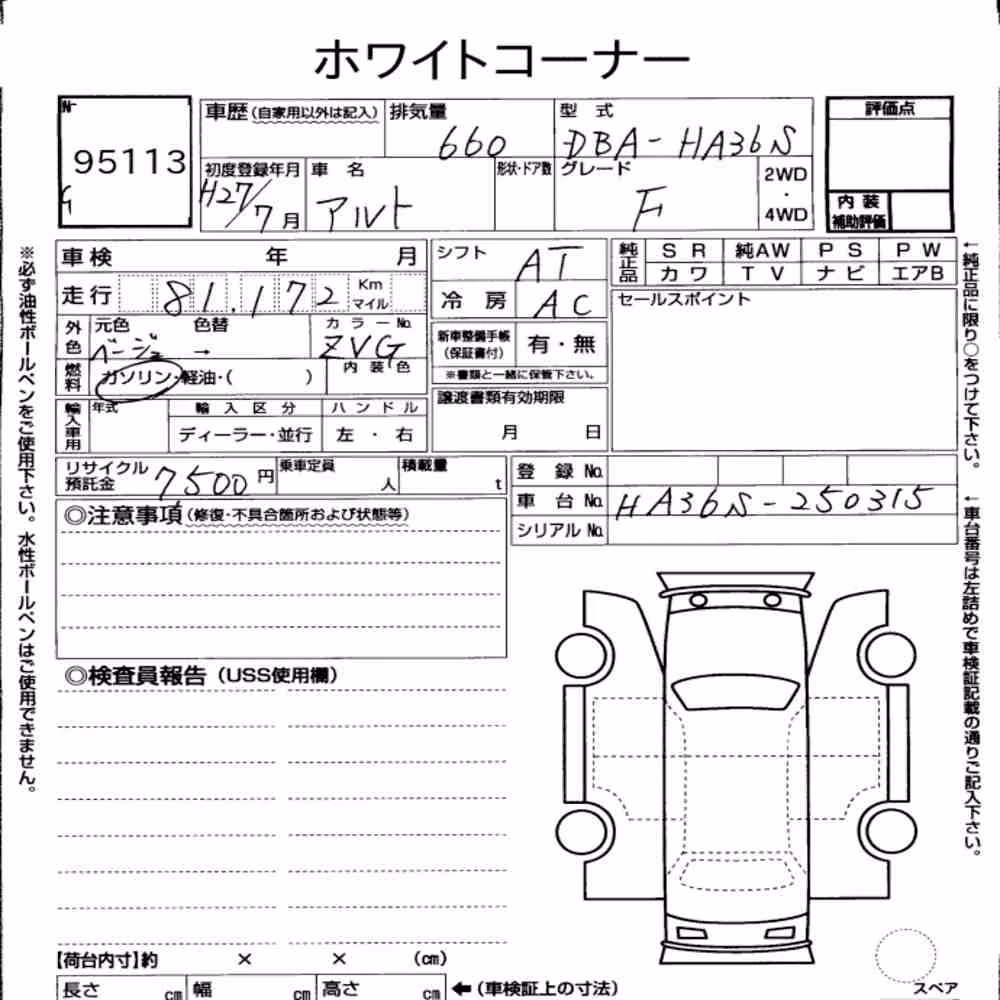 ホワイトコーナー
No.
95113
車歴(自家用以外は記入)
排気量
660
型式
DBA-HA36S
評価点
初度登録年月
H27/7月
車名
アルト
形状・ドア数
グレード
F
2WD
・
4WD
内装
補助評価
車検 年 月
シフト
AT
純正品
SR 純AW PS PW
カワ TV ナビ エアB
走行
81.172
Km
マイル
冷房
AC
セールスポイント
外色
元色
ベージュ
色替
→
カラーNo.
ZVG
新車整備手帳
(保証書付)
有・無
※書類と一緒に保管下さい。
燃料
ガソリン・軽油・( )
内装色
譲渡書類有効期限
月 日
輸入車用
年式
輸入区分
ハンドル
ディーラー・並行
左・右
リサイクル
預託金
7500円
乗車定員
人
積載量
t
登録No.
車台No.
HA36S-250315
シリアルNo.
◎注意事項(修復・不具合箇所および状態等)
◎検査員報告(USS使用欄)
【荷台内寸】約 × × (cm)
長さ cm 幅 cm 高さ cm
←(車検証上の寸法)
スペア
※必ず油性ボールペンをご使用下さい。水性ボールペンはご使用できません。
←純正品に限り○をつけて下さい。
←車台番号は左詰めで車検証記載の通りご記入下さい。